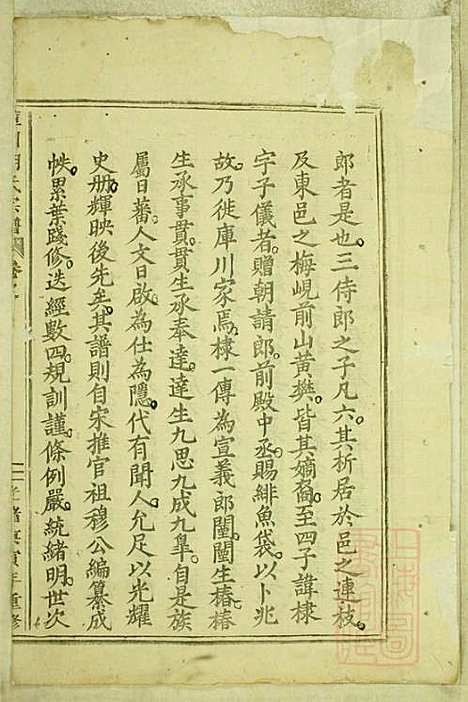 郎者是也三侍郎之子凡六其析居於邑之連枝
及東邑之梅峴前山黄樊皆其嫡裔至四子諱棣
字子儀者贈朝請郎前殿中丞賜緋魚袋以卜兆
故乃徙庫川家焉棣一傳為宣義郎闉闉生椿椿
生承事貫貫生承奉達達生九思九成九臯自是族
屬日蕃人文日啟為仕為隱代有聞人允足以光耀
史册輝映後先矣其譜則自宋推官祖穆公編纂成
帙累葉踐修迭經數四規訓謹條例嚴統緒明世次
川胡氏宗譜 卷之
光緒庚寅年重修